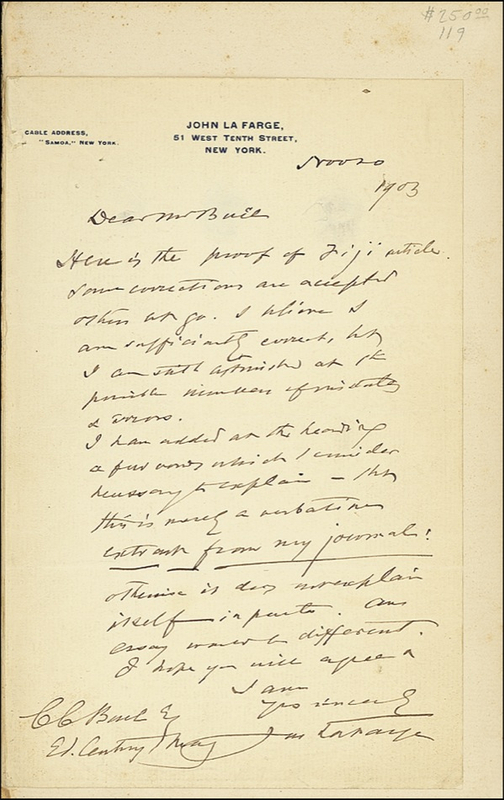 $250.00
119
CABLE ADDRESS,
"SAMOA," NEW YORK.
JOHN LA FARGE,
51 WEST TENTH STREET,
NEW YORK.
Nov 20
1903
Dear Mr Buel
Here is the proof of Fiji article.
Some corrections are accepted
others let go. I believe I
am sufficiently correct, but
I am still astonished at the
possible number of mistakes
& errors.
I have added at the heading
a few words which I consider
necessary to explain — that
this is merely a verbatim
extract from my journal:
otherwise it does not explain
itself in parts. An
essay would be different.
I hope you will agree &
I am
Yrs sincerely
Jno La Farge
C C Buel Esq
Ed. Century Mag